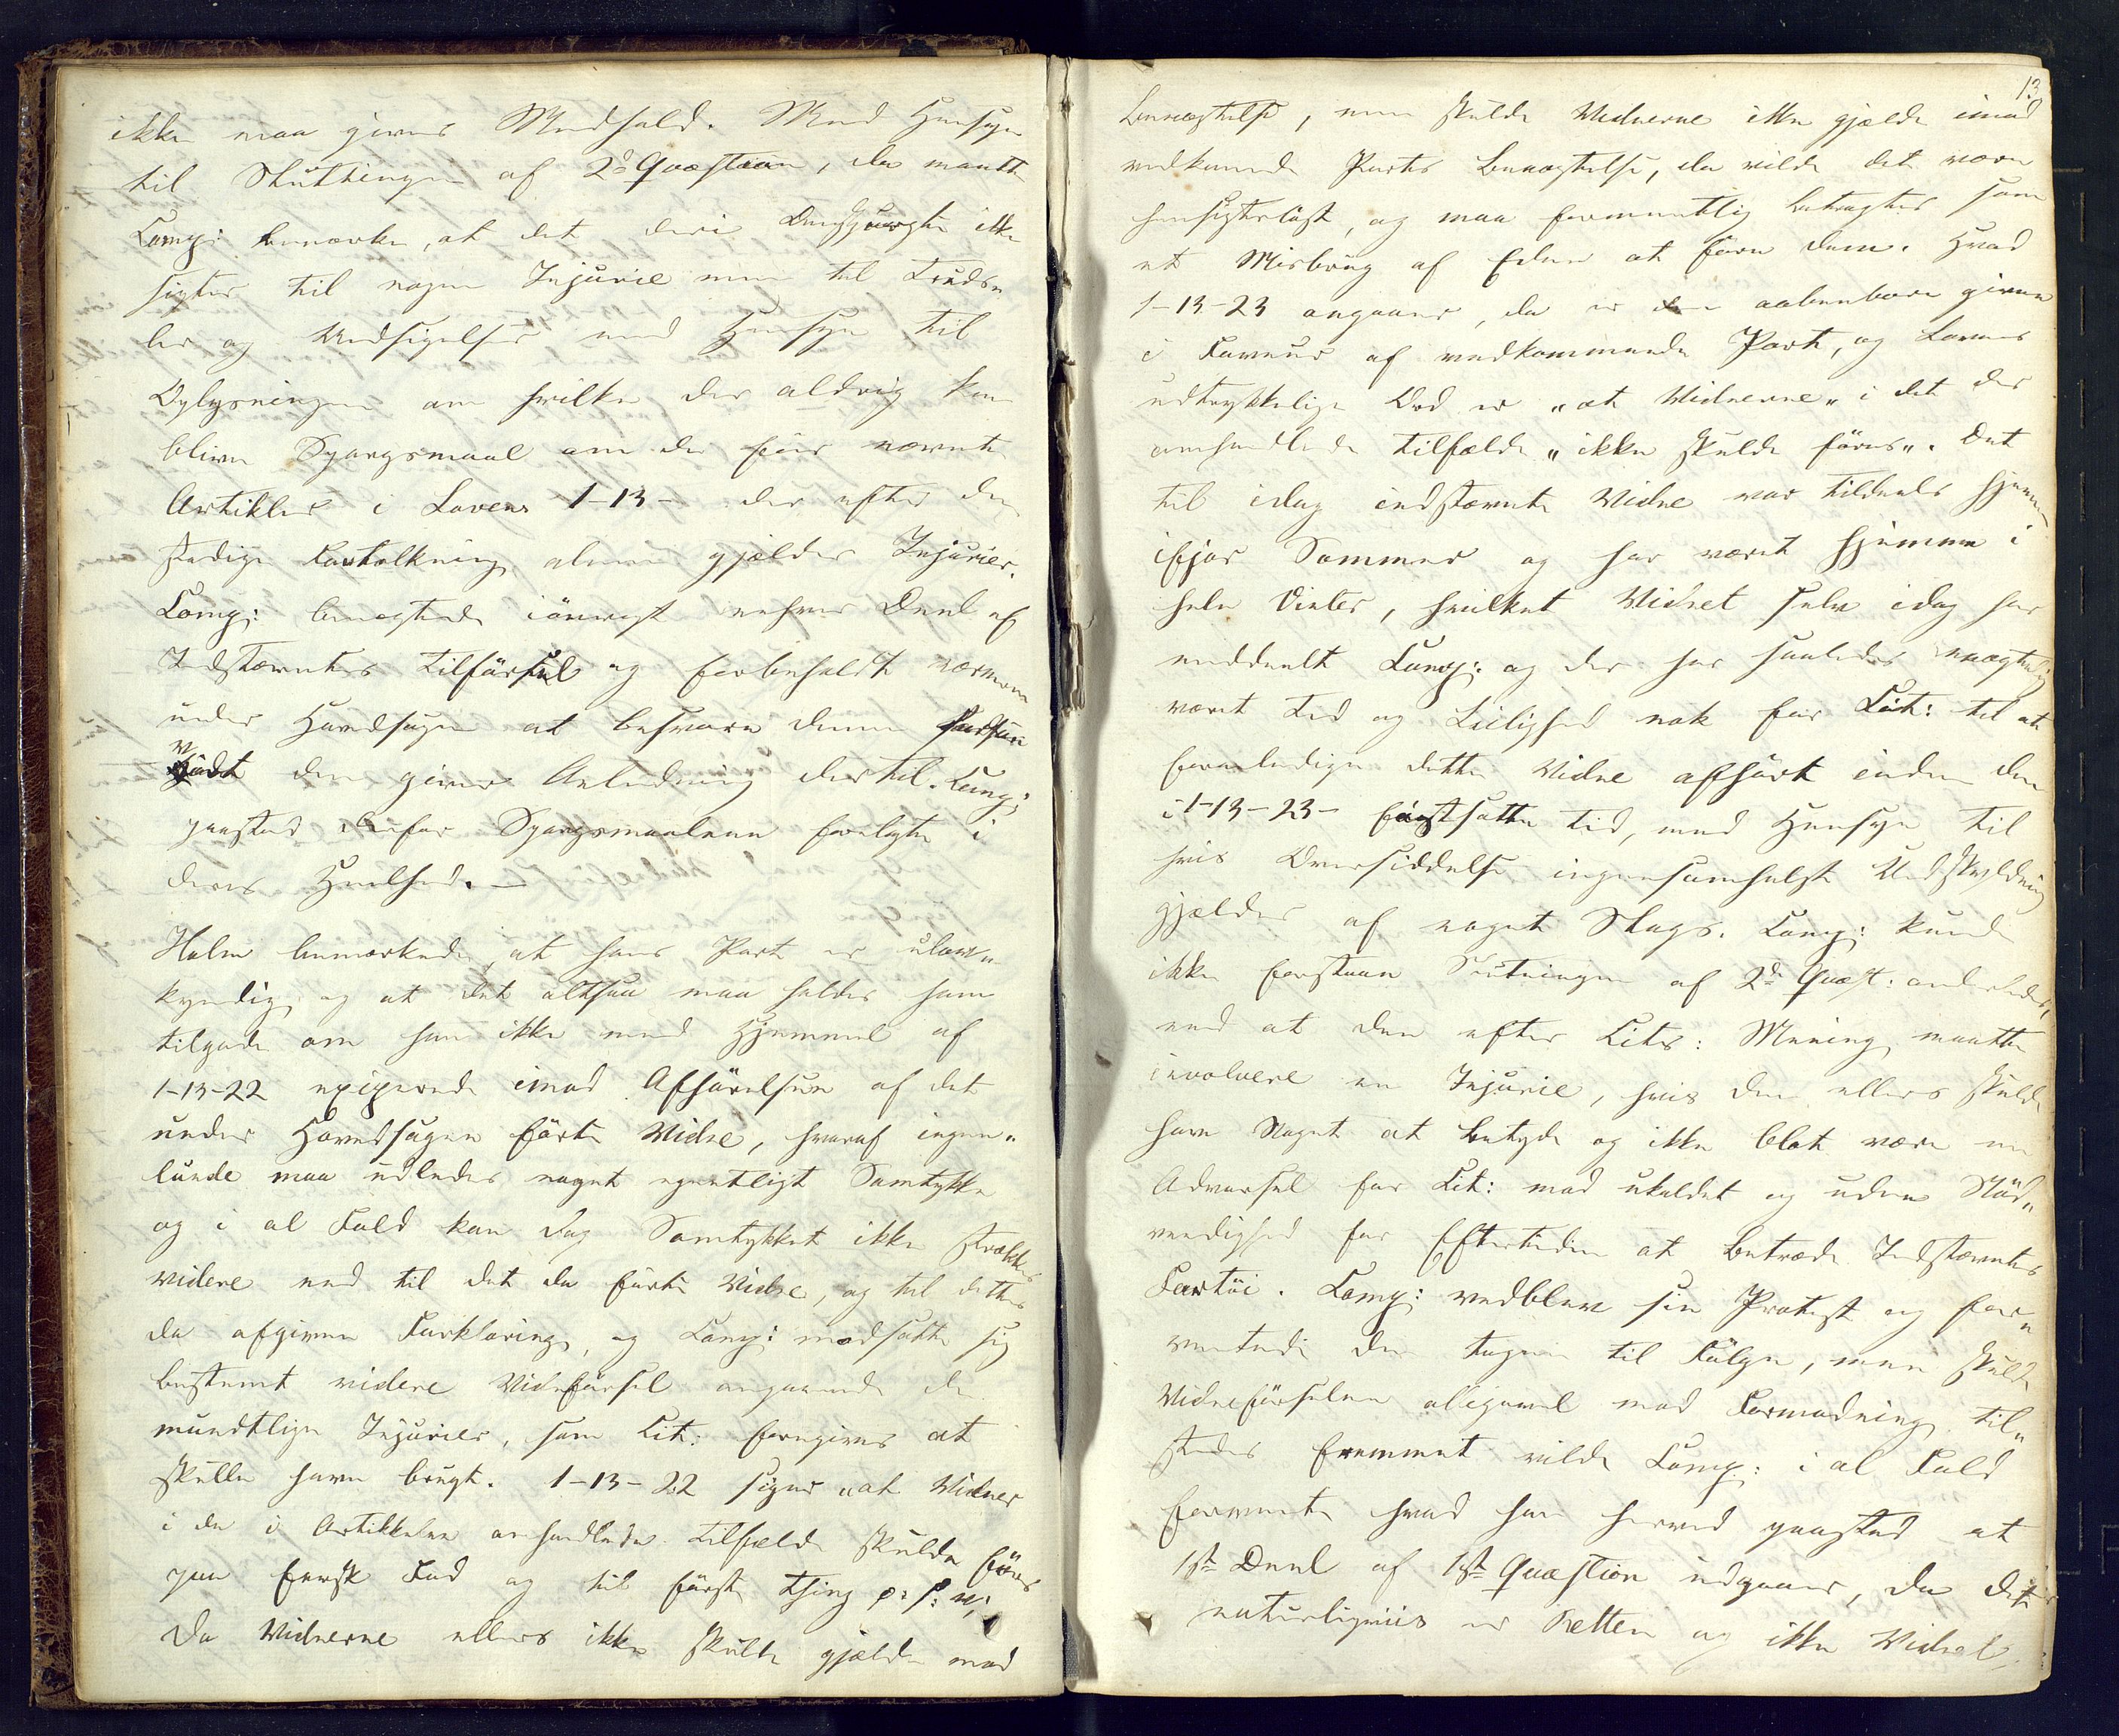 ikke maa gives Medhold. Med Hensyn
til Slutningen af 2d Qvæstion, da maatte
Comp: bemærke, at det deri Omspurgte ikke
sigter til nogen Injurie men til Trudsler
ler og Undsigelser med Hensyn til
Oplysningen om hvilke der aldrig kan
blive Spørgsmaal om de før nævnte
Artikler i Lovens 1-13- der efter den
stedige Fortolkning alene gjælder Injurier.
Comp: benægtede iøvrigt enhver Deel af
Indstævntes Tilførsel og forbeholdt nærmere
under Hovedsagen at besvare denne
vidt den giver Anledning dertil. Comp:
paastod derfor Spørgsmaalene forelagte i
deres Heelhed. –
Holm bemærkede, at hans Part er ulov„
kyndig, og at det altsaa maa holdes ham
tilgode om han ikke med Hjemmel af
1-13-22 exiperede imod Afhørelsen af det
under Hovedsagen førte Vidne, hvoraf ingen„
lunde maa udledes noget egentligt Samtykke
og i al Fald kan dog Samtykket ikke strækkes
videre end til det da førte Vidne, og til dettes
da afgivne Forklaring, og Comp: modsatte sig
bestemt videre Vidneførsel angaaende de
mundtlige Injurier, som Cit: foregives at
skulle have brugt. 1-13-22 siger „at Vidner
i de i Artikkelen omhandlede Tilfælde skulde føres
paa fersk Fod og til først Thing p: p: v:
Da Vidnerne ellers ikke skulde gjælde mod
13
Benægtelse, men skulde Vidnerne ikke gjælde imod
vedkomende Parts Benægtelse, da vilde det være
hensigtsløst, og maa formeentlig betragtes som
et Misbrug af Eden at føre dem. Hvad
1-13-23 angaaer, da er den aabenbare given
i Faveur af vedkommende Part, og Lovens
udtrykkelige Ord er „at Vidnerne„ i det der
omhandlede Tilfælde „ikke skulde føres„. Det
til idag indstævnte Vidne var tildeels hjemme
ifjor Sommer og har været hjemme i
hele Vinter, hvilket Vidnet selv idag har
meddeelt Comp: og der har saaledes
været Tid og Leilighed nok for Cit: til at
foranledige dette Vidne afhørt inden den
i 1-13-23- fastsatte Tid, med Hensyn til
hvis Oversiddelse ingensomhelst Undskyldning
gjælder af noget Slags. Comp: kunde
ikke forstaae Slutningen af 2d Qvæst: anderledes,
end at den efter Cits: Mening maatte
involvere en Injurie, hvis den ellers skulde
have Noget at betyde og ikke blot være en
Advarsel for Cit: mod ukaldet og uden Nød„
vendighed for Eftertiden at betræde Indstævntes
Fartøi. Comp: vedblev sin Protest og for„
ventede den tagen til Følge, men skulde
Vidneførselen alligevel mod Formodning til„
stedes fremmet vilde Comp: i al Fald
formeente hvad han herved paastod at
1ste Deel af 1ste Quæstion udgaaer, da det
naturligviis er Retten og ikke Vidnet,